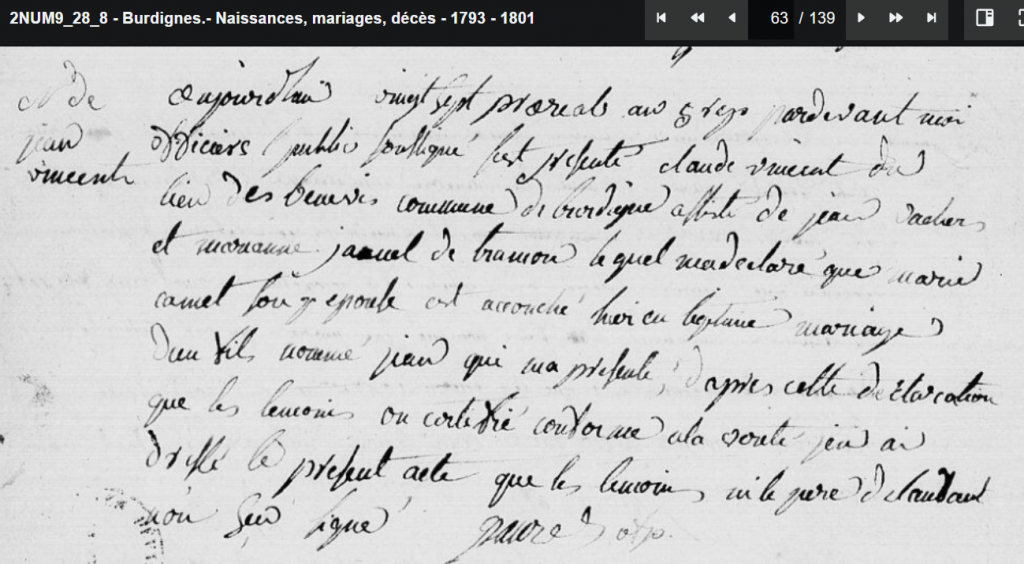 2NUM9_28_8 - Burdignes.- Naissances, mariages, décès - 1793 - 1801
63 / 139
N de
jean
vincent
aujourdhui vingt sept prereal an 5 rep pardevant moi
officiers public soussigné sest presenté claude vincent du
lieu des commune de burdigne assisté de jean vacher
et marianne jamel de tramon le quel ma declaré que marie
camet son epouse est accouché hier en legitime mariage
dun fils nommé jean qui ma presenté, dapres cette declaration
que les temoins on certifié conforme a la verité jen ai
dressé le present acte que les temoins ni le pere declarant
non seu signé